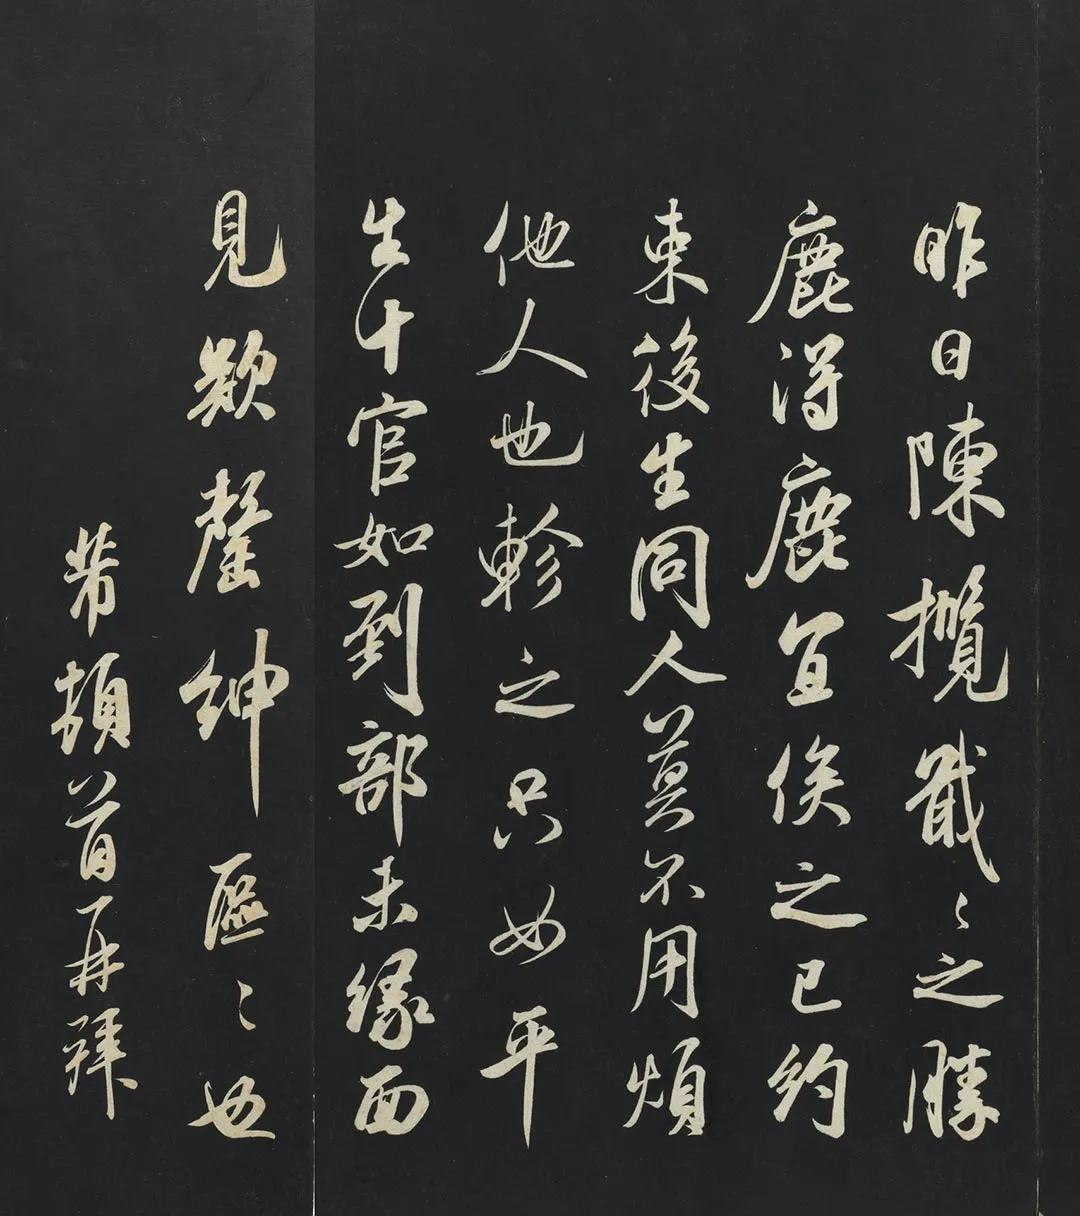 昨日陳攬戢戢之勝
鹿得鹿宜俟之已約
束後生同人莫不用煩
他人也軫之只如平
生十官如到部未緣面
見欵罄紳區區也
芾頓首再拜